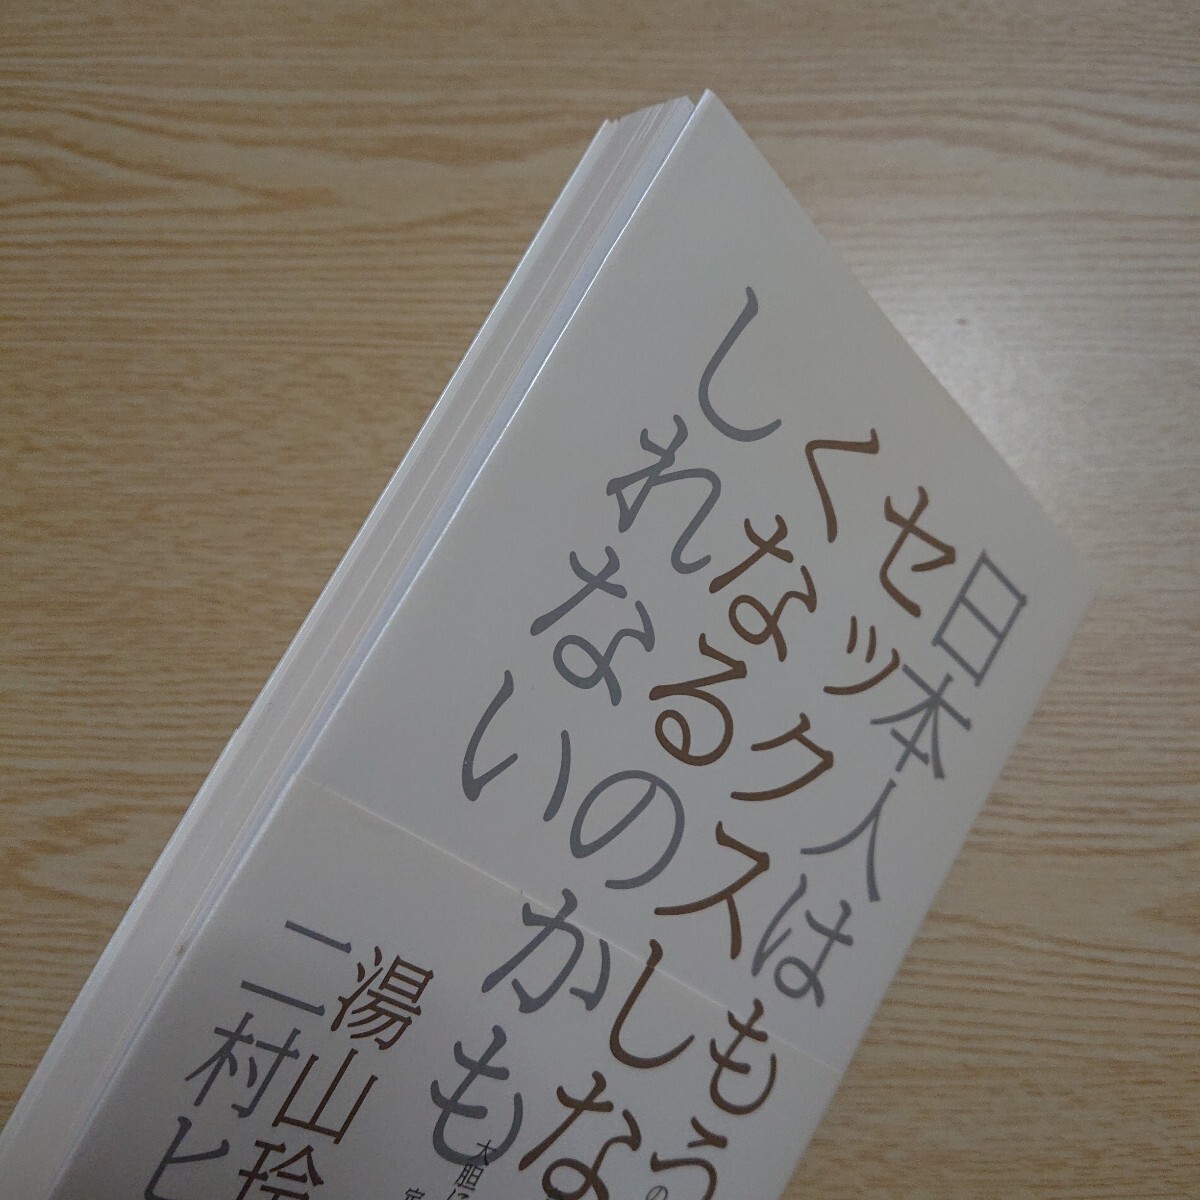 日本人はもう
セックスしな
くなるのかも
しれない
の
大胆に
湯山玲
二村ヒ